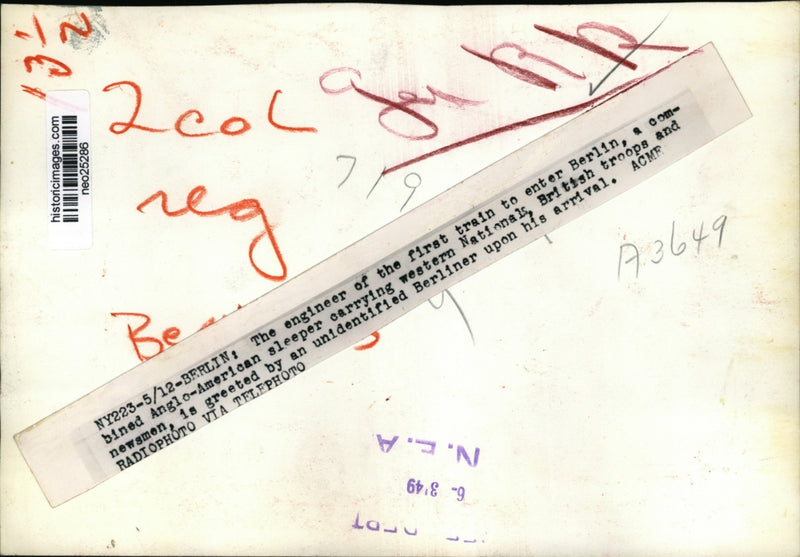 13 1/2
2 col
reg
historicimages.com
neo25286
7/9
A3649
NY223-5/12-BERLIN: The engineer of the first train to enter Berlin, a com-
bined Anglo-American sleeper carrying western Nationals, British troops and
newsmen, is greeted by an unidentified Berliner upon his arrival. ACME
RADIOPHOTO VIA TELEPHOTO
N.E.A
6- 3'49